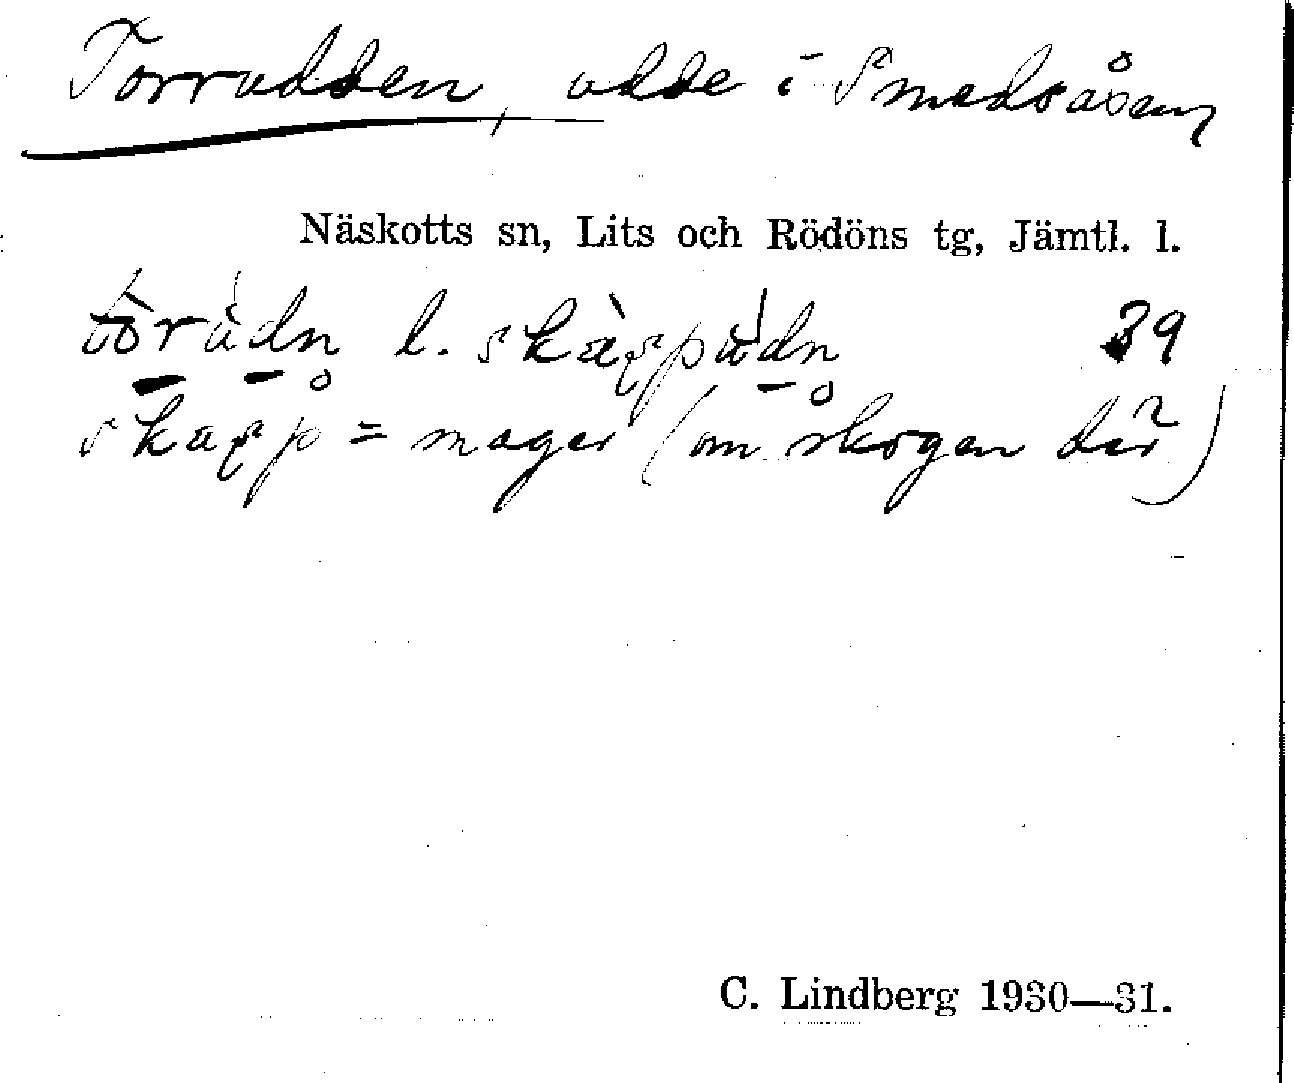 Torrudden, udde i Smedsåsen
Näskotts sn, Lits och Rödöns tg, Jämtl. l.
tòrùdn l. skàrpùdn 39
skarp = mager (om skogen där)
C. Lindberg 1930—31.